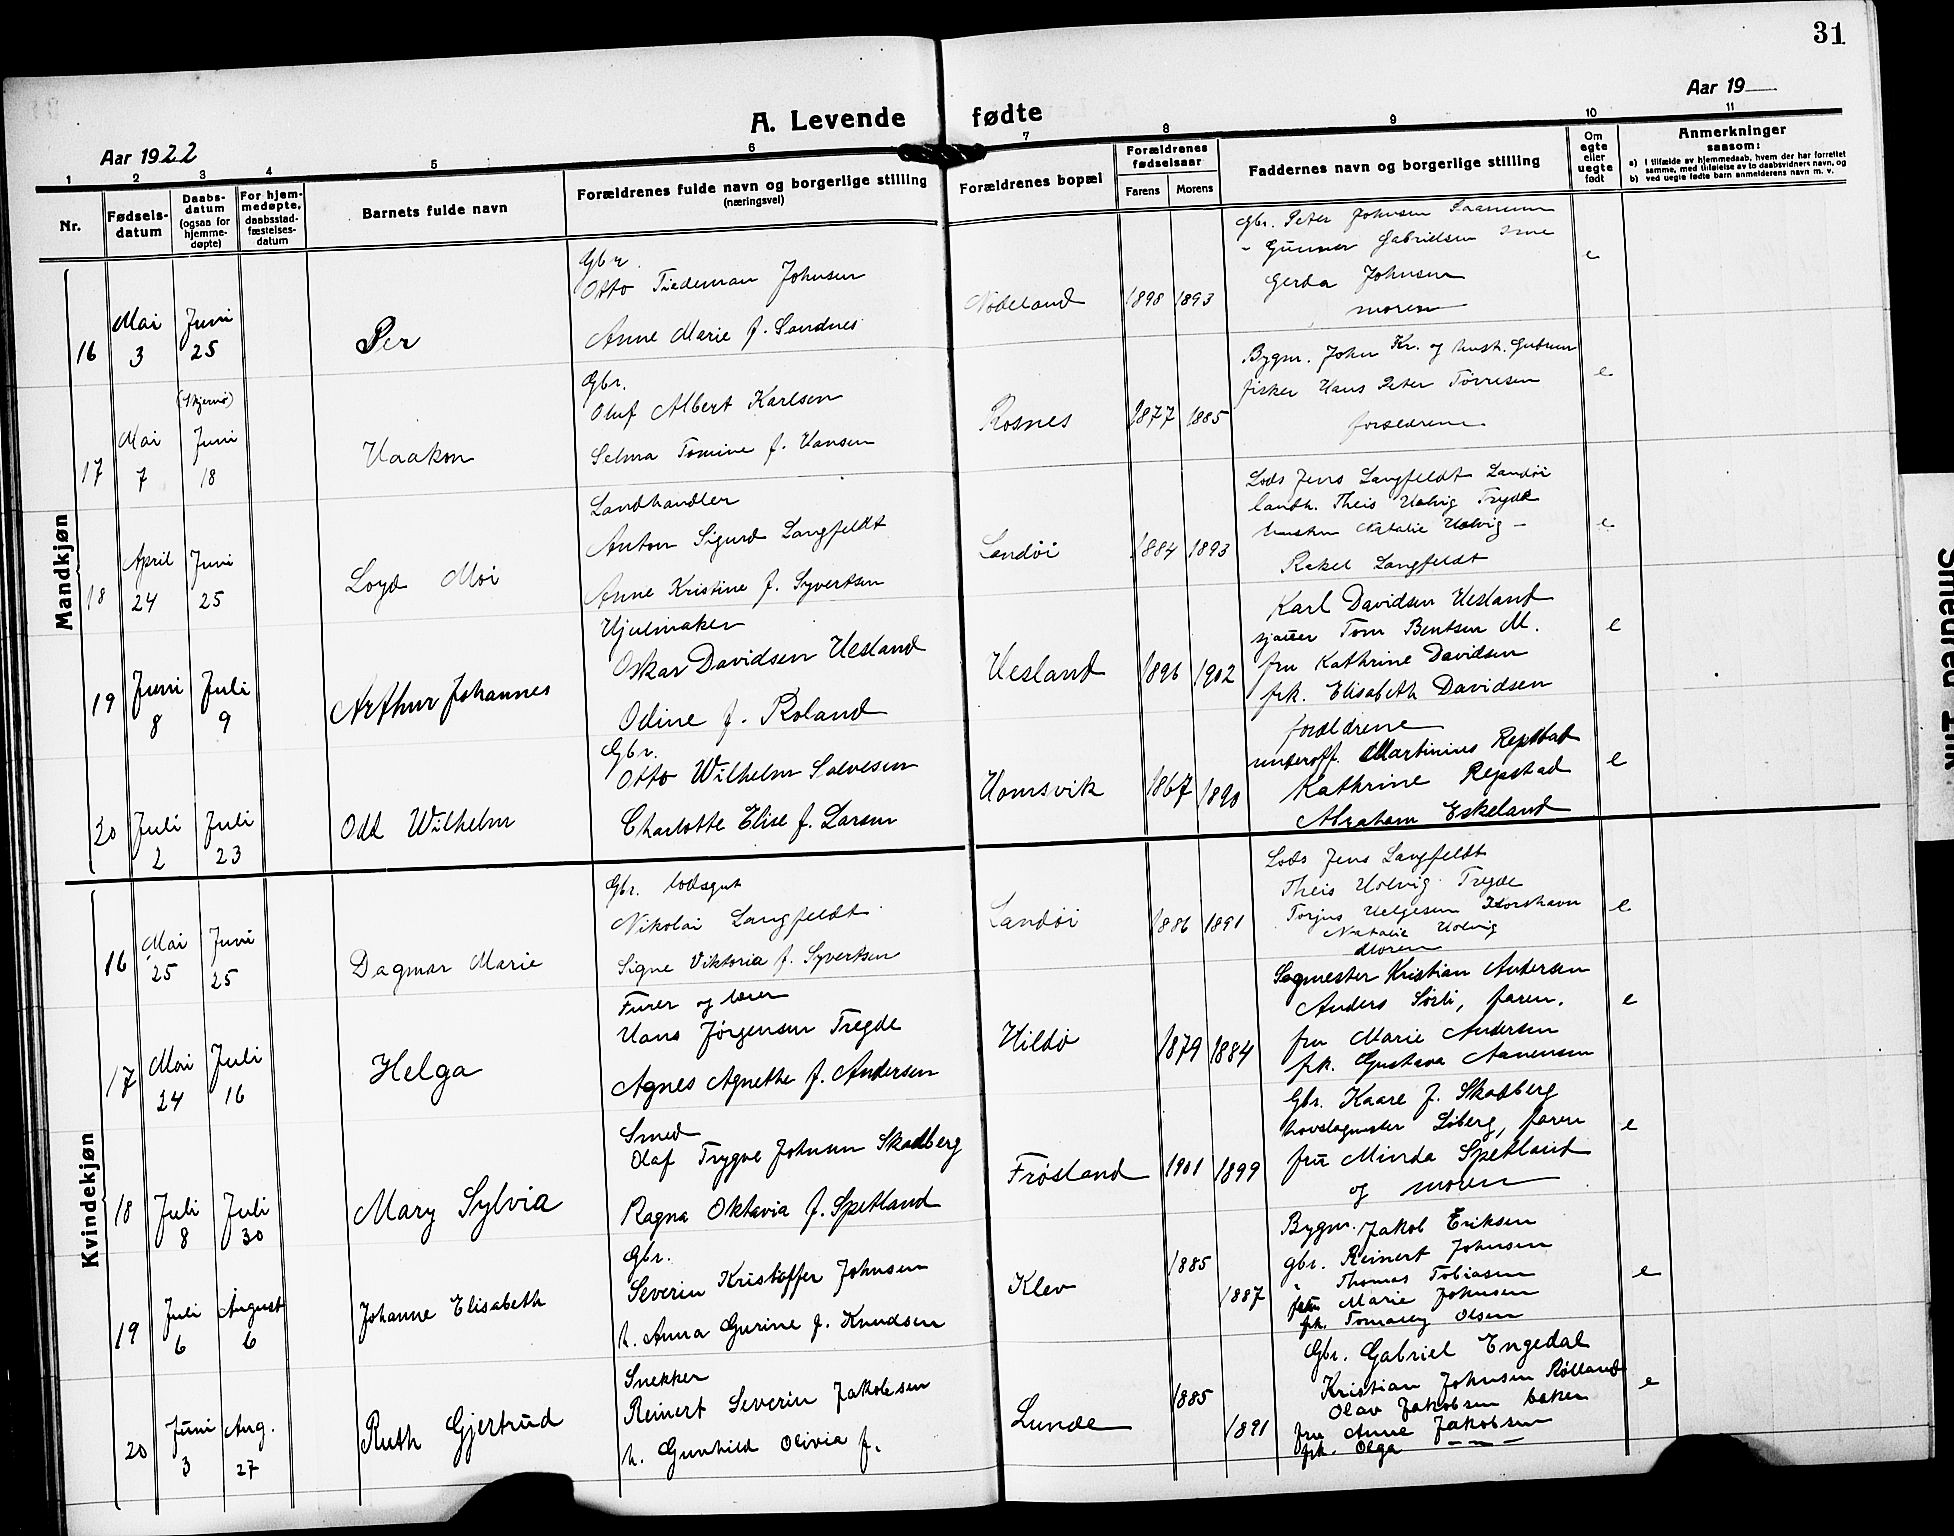 31
A. Levende fødte
Aar 1922
Aar 19
1 2 3 4 5 6 7 8 9 10 11
Nr.
Fødsels-datum
Daabs-datum (ogsaa for hjemme-døpte)
For hjem-medøpte, daabsstad-fæstelses-datum
Barnets fulde navn
Forældrenes fulde navn og borgerlige stilling (næringsvei)
Forældrenes bopæl
Forældrenes fødselsaar
Farens. Morens
Faddernes navn og borgerlige stilling
Om egte eller uegte født
Anmerkninger saasom:
a) I tilfælde av hjemmedaab, hvem der har forrettet samme, med tilføielse av to daabsvidners navn, og
b) ved uegte fødte barn anmelderens navn m. v.
Mandkjøn
16 Mai 3 Juni 25 Per
Gbr.
Otto Tiedeman Johnsen
Anne Marie f. Sandnes
Nodeland 1898 1893
Gbr. Peter Johnsen Saanum
- Gunnar Gabrielsen
Gerda Johnsen
moren
e
17 Mai 7 (Skjernø) Juni 18 Haakon
Gbr.
Oluf Albert Karlsen
Selma Tomine f. Hansen
Rosnes 1877 1885
Bygm. John Kr. og hust. Gudrun
fisker Hans Peter Tørresen
forældrene
e
18 April 24 Juni 25 Loyd Moi
Landhandler
Anton Sigurd Langfeldt
Anne Kristine f. Syvertsen
Landøi 1884 1893
Lods Jens Langfeldt Landøi
landh. Theis Udvig Tregde
hustru Natalie Udvig -
Rakel Langfeldt
e
19 Juni 8 Juli 9 Arthur Johannes
Hjulmaker
Oskar Davidsen Uesland
Odine f. Roland
Uesland 1896 1902
Karl Davidsen Uesland
sjauer Tom Bentsen M.
fru Kathrine Davidsen
frk. Elisabeth Davidsen
forældrene
e
20 Juli 2 Juli 23 Odd Wilhelm
Gbr.
Otto Wilhelm Salvesen
Charlotte Elise f. Larsen
Homsvik 1867 1890
underoff. Martinius Repstad
Kathrine Repstad
Abraham Eskeland
e
Kvindekjøn
16 Mai 25 Juni 25 Dagmar Marie
Gbr. lodsgut
Nikolai Langfeldt
Signe Viktoria f. Syvertsen
Landøi 1886 1891
Lods Jens Langfeldt
Theis Udvig Tregde
Torjus Helgesen
Natalie Udvig
Moren
e
17 Mai 24 Juli 16 Helga
Furer og lærer
Hans Jørgensen Tregde
Agnes Agnethe f. Andersen
Hildø 1879 1884
Sagmester Kristian Andersen
Anders Sørli, faren.
fru Marie Andersen
frk. Gustava Aanensen
e
18 Juli 8 Juli 30 Mary Sylvia
Smed
Olaf Trygve Johnsen Skadberg
Ragna Oktavia f. Spetland
Frøsland 1901 1899
Gbr. Kaare J. Skadberg
hovslagmester Løberg, faren
fru Minda Spetland
og moren
e
19 Juli 6 August 6 Johanne Elisabeth
Gbr.
Severin Kristoffer Johnsen
h. Anna Gurine f. Knudsen
Klev 1885 1887
Bygm. Jakob Eriksen
gbr. Reinert Johnsen
" Thomas Tobiasen
fru Marie Johnsen
frk. Tomasey Olsen
e
20 Juni 3 Aug. 27 Ruth Gjertrud
Snekker
Reinert Severin Jakobsen
h. Gunhild Olivia f.
Lunde 1885 1891
Gbr. Gabriel Engedal
Kristian Johnsen Rølland
Olav Jakobsen baker
fru Anne Jakobsen
frk. Olga - - -
e